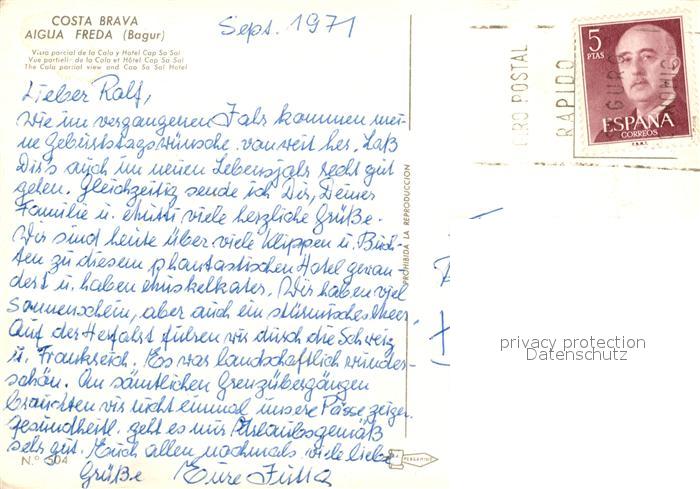 COSTA BRAVA
AIGUA FREDA (Bagur)
Vista parcial de la Cala y Hotel Cap Sa Sal
Vue partielle de la Cala et Hôtel Cap Sa Sal
The Cala partial view and Cap Sa Sal Hotel
Sept. 1971
Lieber Ralf,
wie im vergangenen Jahr kommen mei-
ne Geburtstagswünsche von weit her. Laß
Dir's auch im neuen Lebensjahr recht gut
gehen. Gleichzeitig sende ich Dir, Deiner
Familie u. Mutti viele herzliche Grüße.
Wir sind heute über viele Klippen u. Buch-
ten zu diesem phantastischen Hotel gewan
dert u. haben Muskelkater. Wir haben viel
Sonnenschein, aber auch ein stürmisches Meer
Auf der Herfahrt fuhren wir durch die Schweiz
u. Frankreich. Es war landschaftlich wunder-
schön. An sämtlichen Grenzübergängen
brauchten wir nicht einmal unsere Pässe zeigen.
Gesundheitl. geht es uns Urlaubsgemäß
sehr gut. Euch allen nochmals viele liebe
Grüße Eure Jutta
N.º 504
PROHIBIDA LA REPRODUCCION
PERGAMINO
5
PTAS
ESPAÑA
CORREOS
F.N.M.T.
POSTAL
RAPIDO
privacy protection
Datenschutz